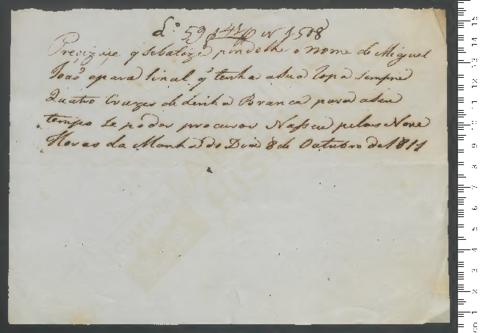 L.º 59 141 N 1508
Precizase q se batize pondolhe o nome de Miguel
João e para sinal q tenha a sua ropa sempre
Quatro Cruzes de Linha Branca para a seu
tempo se poder procurar Nasceu pelas Nove
Horas da Manhã do Dia 8 de Outubro de 1811